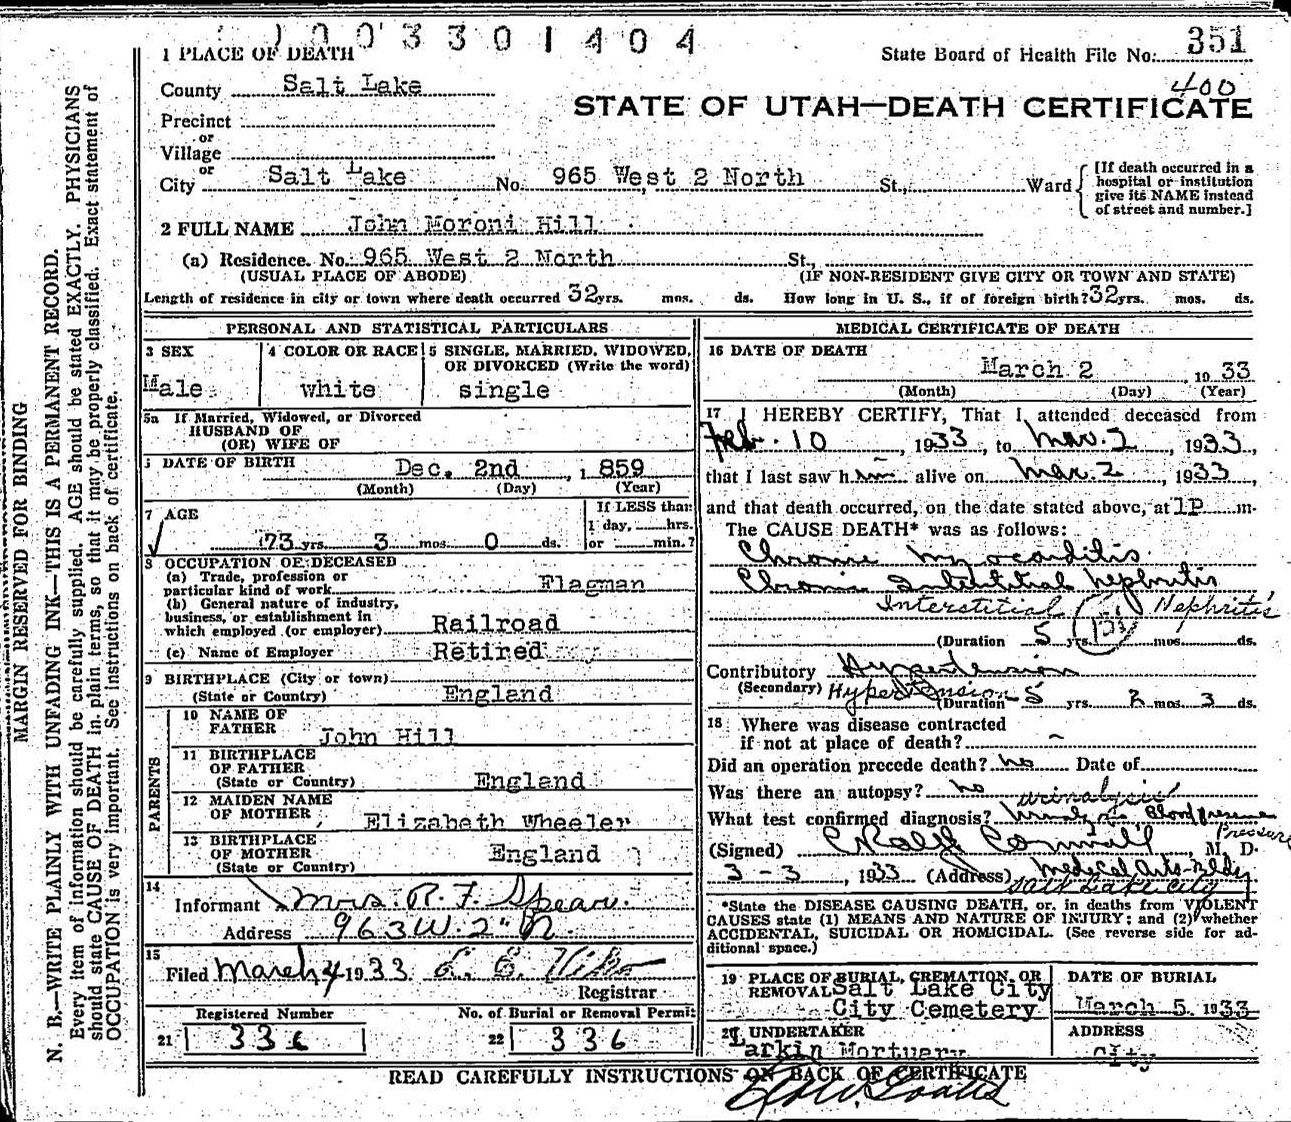 1003301404
1 PLACE OF DEATH
State Board of Health File No. 351
County Salt Lake
400
STATE OF UTAH—DEATH CERTIFICATE
Precinct
or
Village
or
City Salt Lake No. 965 West 2 North St., Ward
[If death occurred in a
hospital or institution
give its NAME instead
of street and number.]
2 FULL NAME John Moroni Hill
(a) Residence. No. 965 West 2 North St.,
(USUAL PLACE OF ABODE) (IF NON-RESIDENT GIVE CITY OR TOWN AND STATE)
Length of residence in city or town where death occurred 32 yrs. mos. ds. How long in U. S., if of foreign birth? 32 yrs. mos. ds.
PERSONAL AND STATISTICAL PARTICULARS
3 SEX
Male
4 COLOR OR RACE
white
5 SINGLE, MARRIED, WIDOWED,
OR DIVORCED (Write the word)
single
5a If Married, Widowed, or Divorced
HUSBAND OF
(OR) WIFE OF
DATE OF BIRTH Dec. 2nd, 1859
(Month) (Day) (Year)
7 AGE
73 yrs. 3 mos. 0 ds.
If LESS than
1 day, hrs.
or min.?
8 OCCUPATION OF DECEASED
(a) Trade, profession or
particular kind of work Flagman
(b) General nature of industry,
business, or establishment in
which employed (or employer) Railroad
(c) Name of Employer Retired
9 BIRTHPLACE (City or town)
(State or Country) England
PARENTS
10 NAME OF
FATHER John Hill
11 BIRTHPLACE
OF FATHER
(State or Country) England
12 MAIDEN NAME
OF MOTHER Elizabeth Wheeler
13 BIRTHPLACE
OF MOTHER England
(State or Country)
14
Informant Mrs. R. F. Spears.
Address 963 W. 2" N.
15
Filed March 4 1933
Registrar
Registered Number
21 336
No. of Burial or Removal Permit
22 336
MEDICAL CERTIFICATE OF DEATH
16 DATE OF DEATH
March 2, 1933
(Month) (Day) (Year)
17 I HEREBY CERTIFY, That I attended deceased from
Feb. 10, 1933, to Mar. 2, 1933,
that I last saw him alive on Mar. 2, 1933,
and that death occurred, on the date stated above, at 1P m.
The CAUSE DEATH* was as follows:
Chronic Myocarditis
Chronic Interstitial Nephritis
Interstitial 131 Nephritis
(Duration 5 yrs. mos. ds.
Contributory Hypertension
(Secondary) Hypertension
(Duration 5 yrs. 2 mos. 3 ds.
18 Where was disease contracted
if not at place of death? -
Did an operation precede death? no Date of
Was there an autopsy? no urinalysis
What test confirmed diagnosis? urinalysis Blood pressure
Pressure
(Signed) M. D.
3-3, 1933 (Address) Medical Arts Bldg
Salt Lake City
*State the DISEASE CAUSING DEATH, or, in deaths from VIOLENT
CAUSES state (1) MEANS AND NATURE OF INJURY; and (2) whether
ACCIDENTAL, SUICIDAL OR HOMICIDAL. (See reverse side for ad-
ditional space.)
19 PLACE OF BURIAL, CREMATION, OR
REMOVAL Salt Lake City
City Cemetery
DATE OF BURIAL
March 5, 1933
UNDERTAKER
Larkin Mortuary
ADDRESS
City
READ CAREFULLY INSTRUCTIONS ON BACK OF CERTIFICATE
MARGIN RESERVED FOR BINDING
N. B.—WRITE PLAINLY WITH UNFADING INK—THIS IS A PERMANENT RECORD.
Every item of information should be carefully supplied. AGE should be stated EXACTLY. PHYSICIANS
should state CAUSE OF DEATH in plain terms, so that it may be properly classified. Exact statement of
OCCUPATION is very important. See instructions on back of certificate.